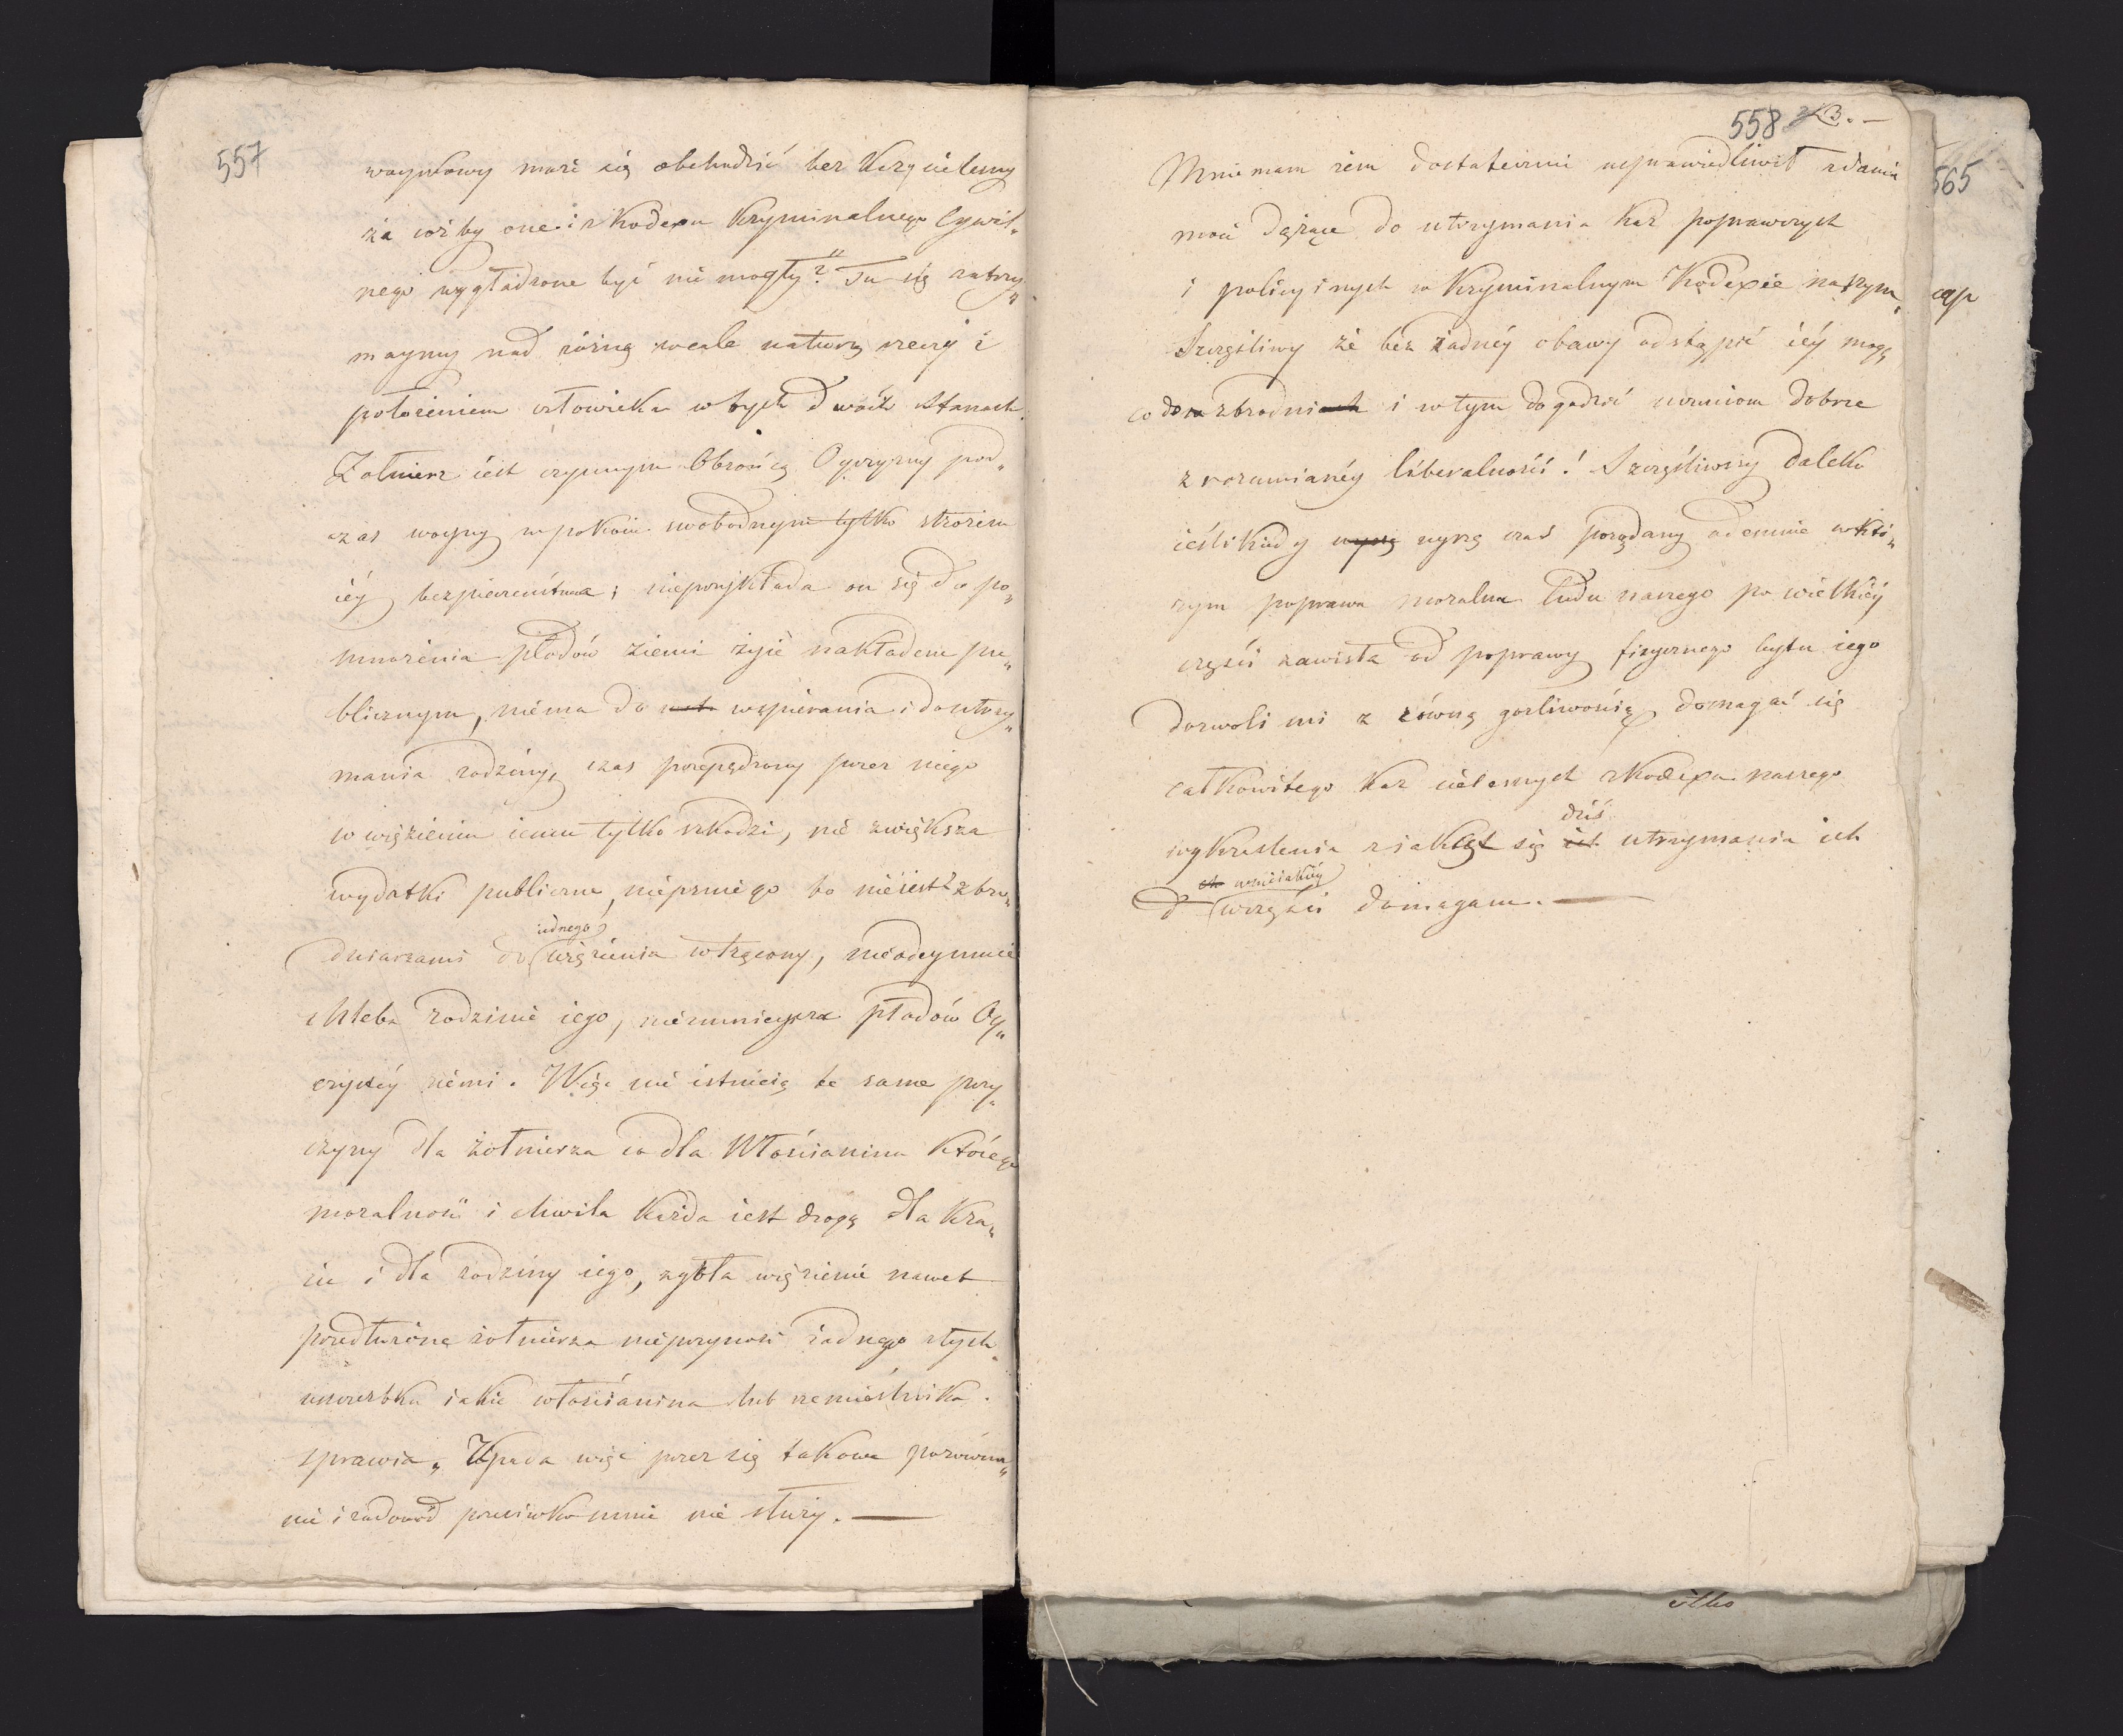 557
woyskowy może się obchodzić bez kary cielesny
za cóż by one i z kodexu kryminalnego Cywil„
nego wygładzone być nie mogły?" Tu się zatrzy„
maymy nad różną wcale naturą rzeczy i
położeniem człowieka w tych dwóch stanach.
Żołnierz iest czynnym Obrońcą Oyczyzny pod„
czas woyny w pokoiu swobodnym tylko stróżem
iéy bezpieczeństwa; nieprzykłada on się do po„
mnożenia płodów ziemi żyie nakładem pu„
blicznym, niema do wspierania i do utrzy„
mania rodziny, czas przepędzony przez niego
w więzieniu iemu tylko szkodzi, nie zwiększa
wydatki publiczne, niepsuie go bo nieiest z zbro„
dniarzami do iednego więzienia wtrącony, nieodeymuie
chleba rodzinie iego, niezmnieysza płodów Oy„
czystéy ziemi. Więc nie istnieią te same przy„
czyny dla żołnierza co dla Włościanina którego
moralność i chwila każda iest drogą dla kra„
iu i dla rodziny iego, zgoła więzienie nawet
przedłużone żołnierza nieprzynosi żadnego z tych
uszczerbku iakie włościanina lub rzemieślnika
sprawia. Upada więc przez się takowe porówna„
nie i za dowód przeciwko mnie nie służy. —
558 B. —
Mniemam żem dostatecznie usprawiedliwił zdania
moie dążące do utrzymania kar poprawczych
i policyinych w kryminalnym kodexie naszym,
Szczęśliwy że bez żadnéy obawy odstąpić iéy mogę
co do zbrodni i w tym dogodzić uczuciom dobrze
zrozumianéy liberalności! Szczęśliwszy daleko
ieśli kiedy uyrzę czas pożądany odemnie w któ„
rym poprawa moralna ludu naszego po wielkiéy
części zawisła od poprawy fizycznego bytu iego
dozwoli mi z równą gorliwością domagać się
całkowitego kar cielesnych z kodexu naszego
wykreślenia z iaką się dziś utrzymania ich
w nieiakiéy części domagam. —
565